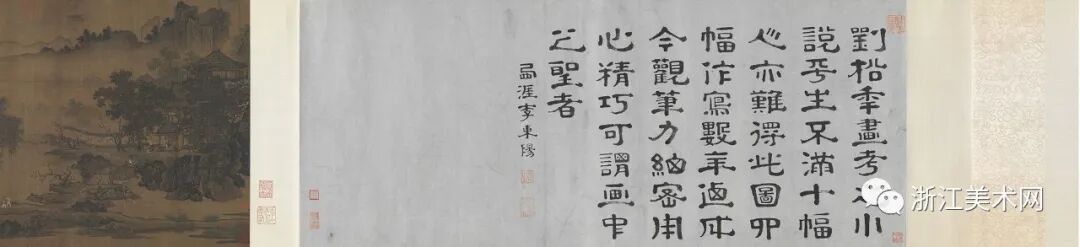 劉松年畫考之小
說平生不滿十幅
亦難得此圖四
幅作寫數年迺成
今觀筆力細密用
心精巧可謂画中
之聖者
西涯李東陽
浙江美术网